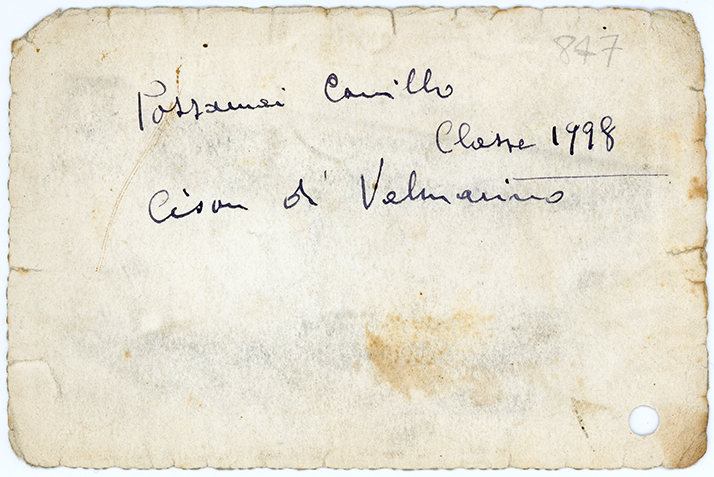 847
Possamai Camillo
Classe 1998
Cison di Valmarino